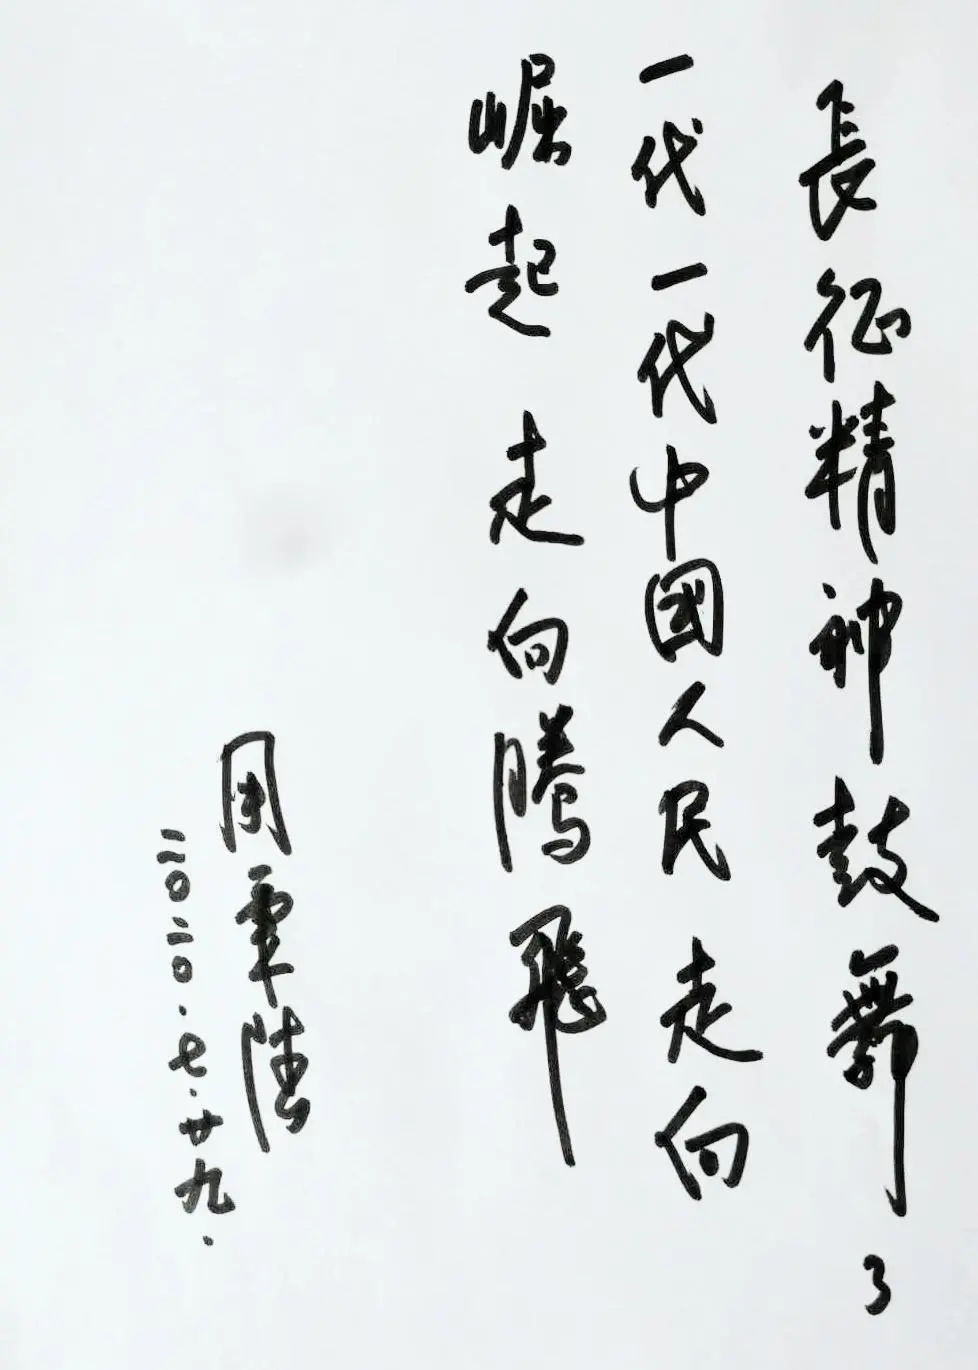 長征精神鼓舞了
一代一代中國人民走向
崛起 走向騰飛
周霖隆
二〇二〇.七.廿九.